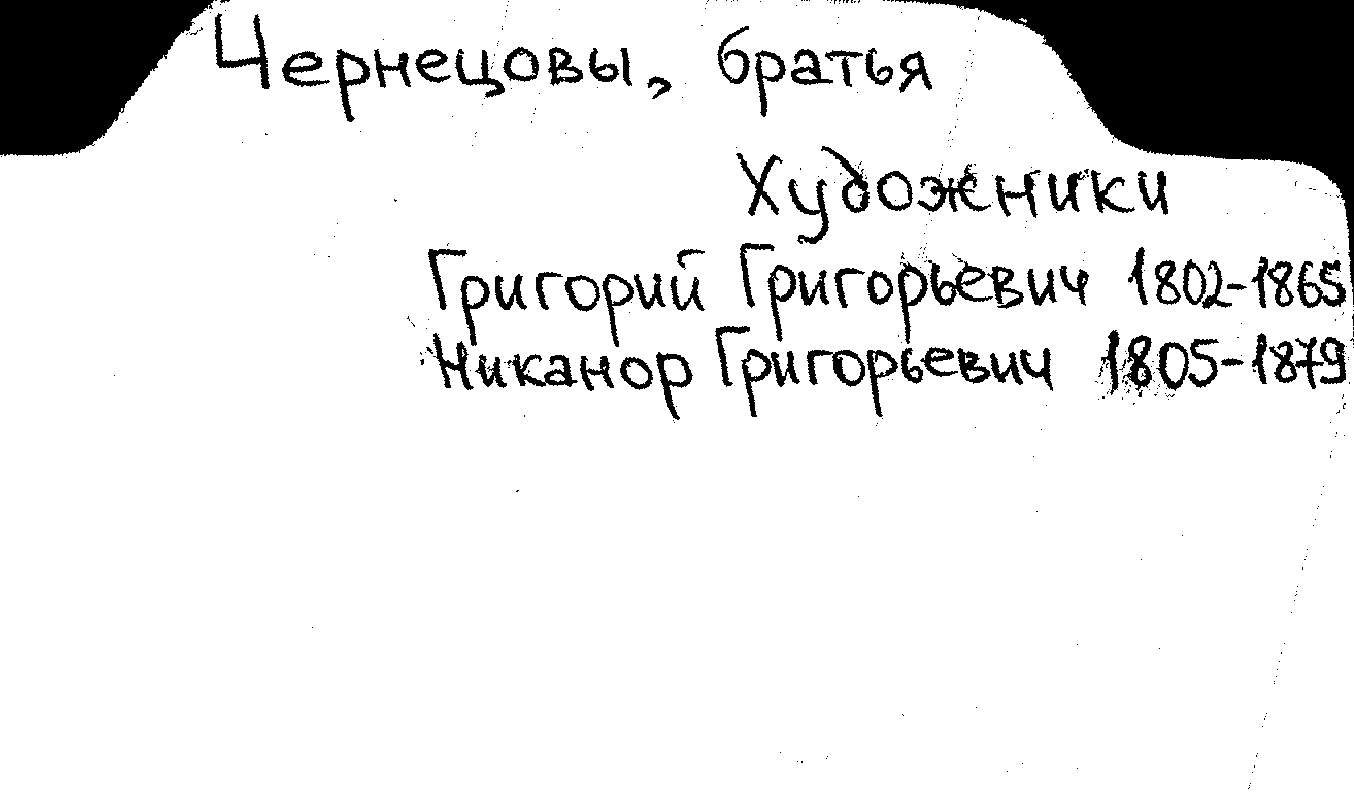 Чернецовы, братья
Художники
Григорий Григорьевич 1802-1865
Никанор Григорьевич 1805-1879